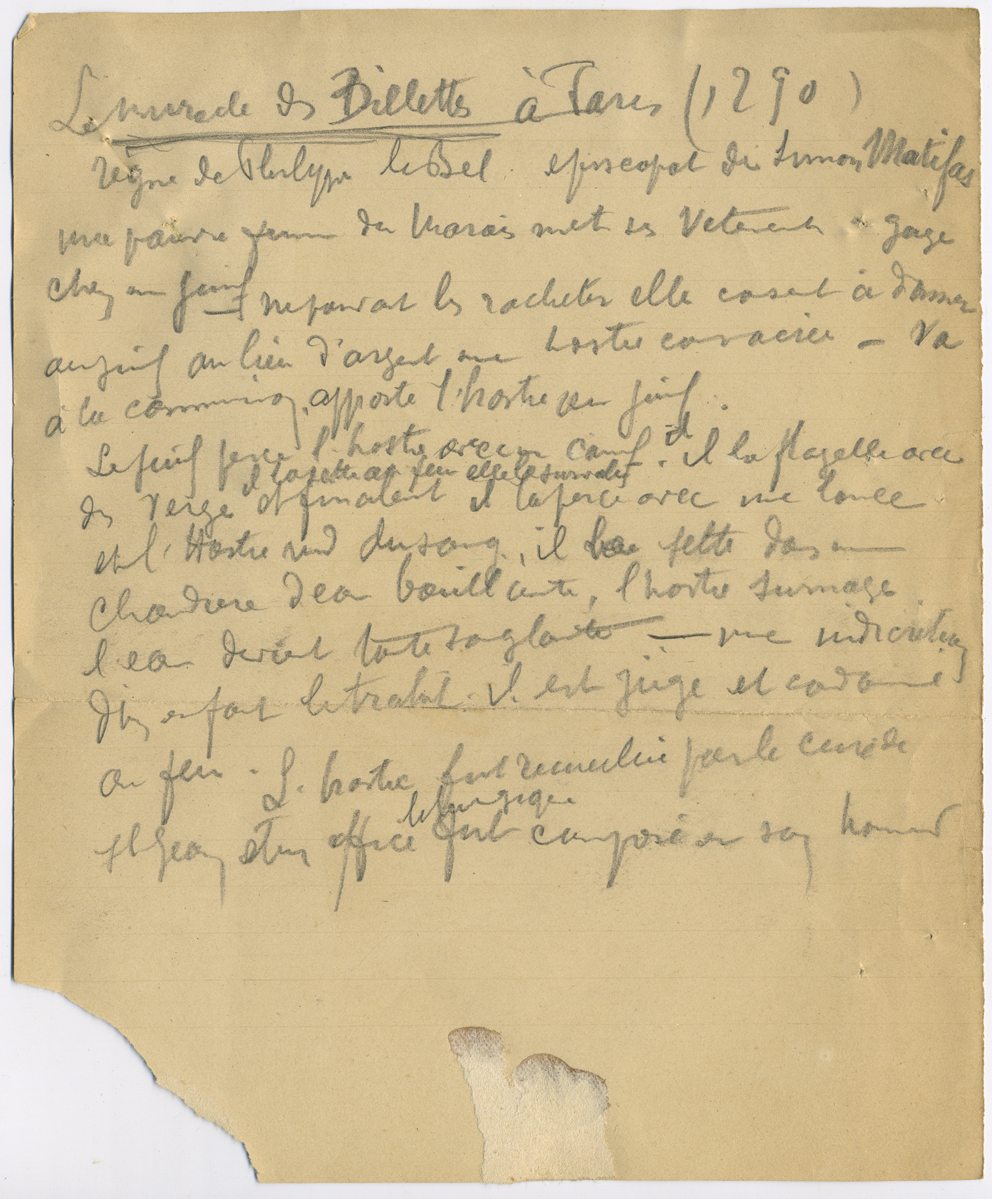 Le miracle des Billettes à Paris (1290)
règne de Philippe le Bel. episcopat de Simon Matifas
une pauvre femme du Marais met ses Vetements en gage
chez un Juif ne pouvant les racheter elle consent à donner
au juif au lieu d'argent une hostie consacrée – Va
à la communion, apporte l'hostie au juif.
Le juif perce l'hostie avec un canif. il la flagelle avec
il la jette au feu elle
des verge et finalement il la perce avec une lance
et l'Hostie rend du sang, il la jette dans une
chaudiere d'eau bouillante, l'hostie surnage
l'eau devient toute sanglante — une indiscretion
d'un enfant le trahit. il est jugé et condamné
au feu. L'hostie fut recueillie par le curé de
liturgique
St Jean et un office fut composé en son honneur